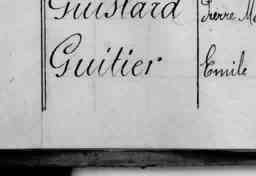 Guistard Pierre
Guitier Emile